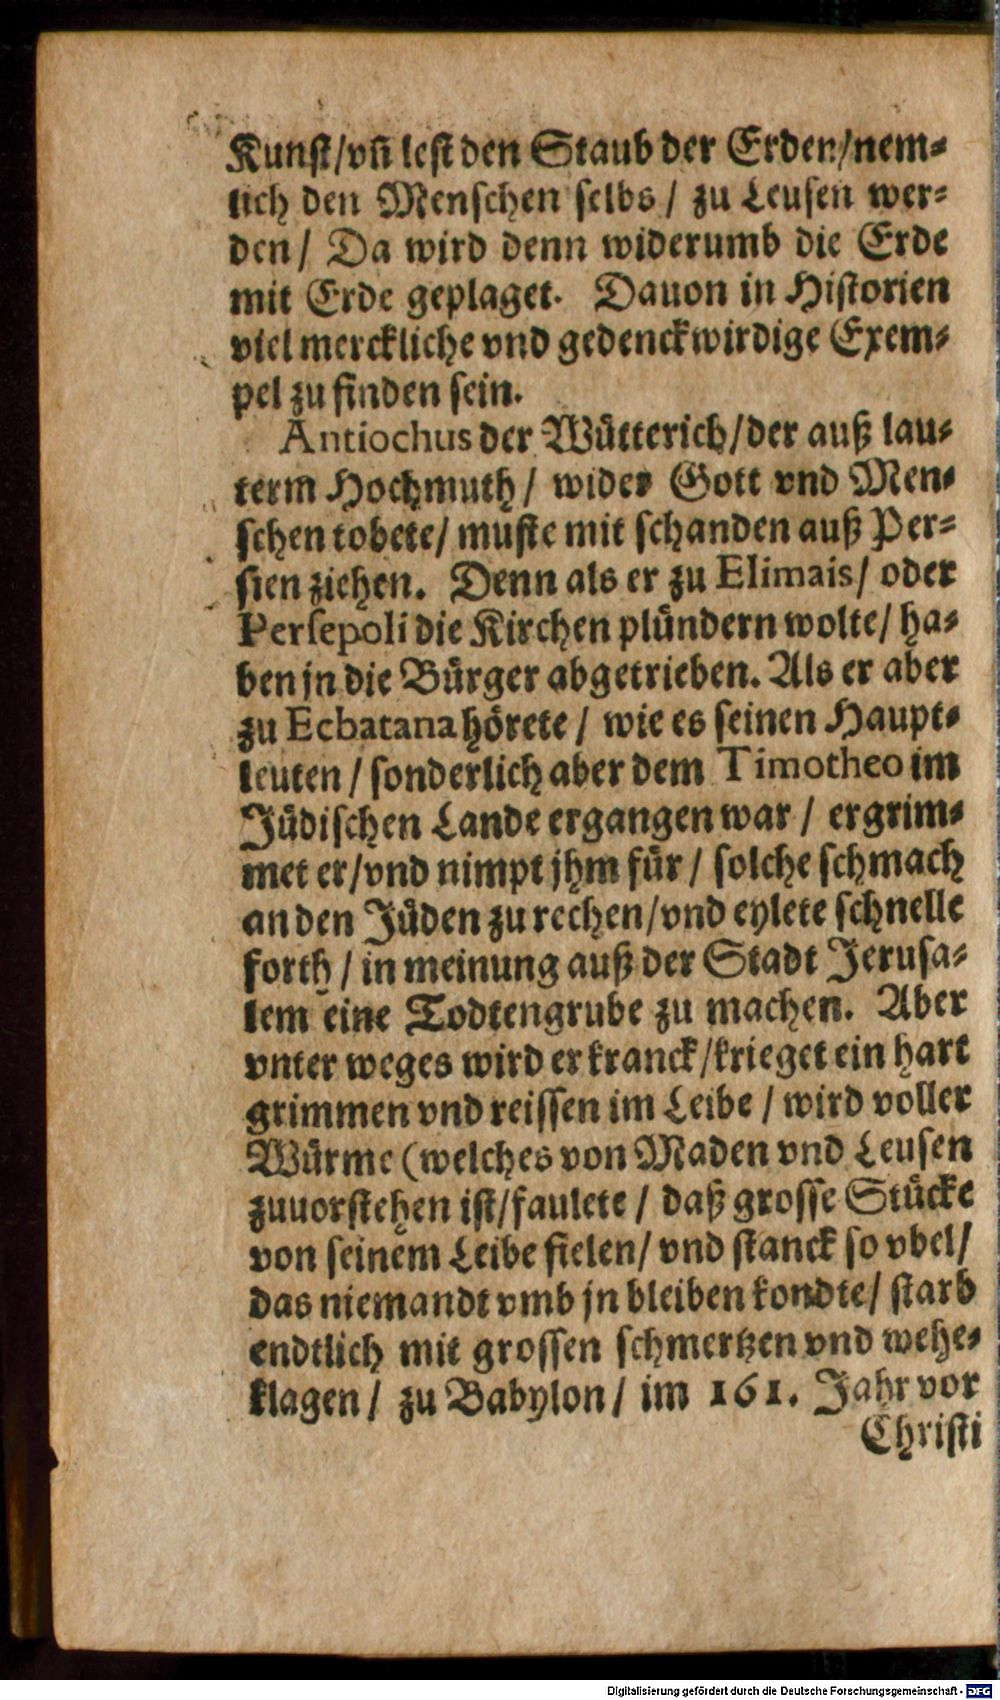 Kunst/vñ lest den Staub der Erden/nem-
lich den Menschen selbs/ zu Leusen wer-
den/ Da wird denn widerumb die Erde
mit Erde geplaget. Dauon in Historien
viel merckliche vnd gedenckwirdige Exem-
pel zu finden sein.
Antiochus der Wütterich/der auß lau-
term Hochmuth/ wider Gott vnd Men-
schen tobete/ muste mit schanden auß Per-
sien ziehen. Denn als er zu Elimais/ oder
Persepoli die Kirchen plündern wolte/ ha-
ben jn die Bürger abgetrieben. Als er aber
zu Ecbatana hörete/ wie es seinen Haupt-
leuten/ sonderlich aber dem Timotheo im
Jüdischen Lande ergangen war/ ergrim-
met er/vnd nimpt jhm für/ solche schmach
an den Jüden zu rechen/vnd eylete schnelle
forth/ in meinung auß der Stadt Jerusa-
lem eine Todtengrube zu machen. Aber
vnter weges wird er kranck/krieget ein hart
grimmen vnd reissen im Leibe/ wird voller
Würme (welches von Maden vnd Leusen
zuuorstehen ist/faulete/ daß grosse Stücke
von seinem Leibe fielen/ vnd stanck so vbel/
das niemandt vmb jn bleiben kondte/ starb
endtlich mit grossen schmertzen vnd wehe-
klagen/ zu Babylon/ im 161. Jahr vor
Christi
Digitalisierung gefördert durch die Deutsche Forschungsgemeinschaft - DFG